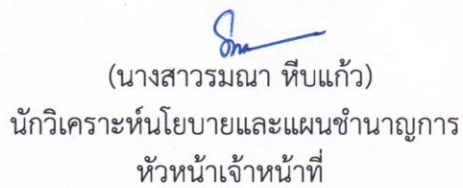 (นางสาวรมณา หีบแก้ว)
นักวิเคราะห์นโยบายและแผนชำนาญการ
หัวหน้าเจ้าหน้าที่